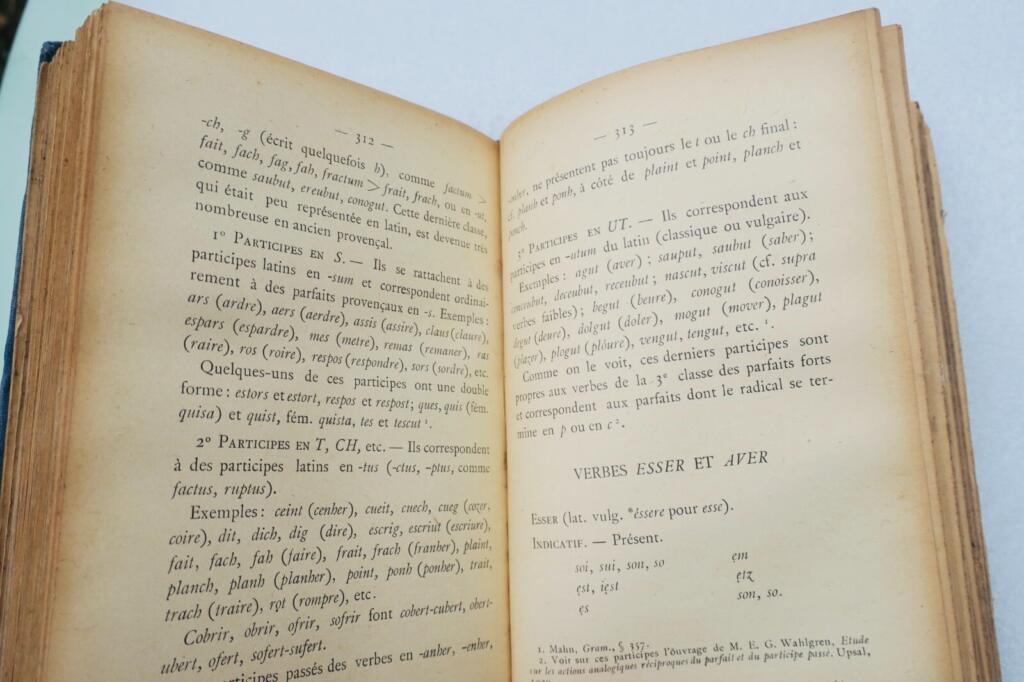 — 312 —
-ch, -g (écrit quelquefois h), comme factum >
fait, fach, fag, fah, fractum > frait, frach, ou en -ut,
comme saubut, ereubut, conogut. Cette dernière classe,
qui était peu représentée en latin, est devenue très
nombreuse en ancien provençal.
1º PARTICIPES EN S. — Ils se rattachent à des
participes latins en -sum et correspondent ordinai-
rement à des parfaits provençaux en -s. Exemples :
ars (ardre), aers (aerdre), assis (assire), claus (claure),
espars (espardre), mes (metre), remas (remaner), ras
(raire), ros (roire), respos (respondre), sors (sordre), etc.
Quelques-uns de ces participes ont une double
forme : estors et estort, respos et respost ; ques, quis (fém.
quisa) et quist, fém. quista, tes et tescut ¹.
2º PARTICIPES EN T, CH, etc. — Ils correspondent
à des participes latins en -tus (-ctus, -ptus, comme
factus, ruptus).
Exemples : ceint (cenher), cueit, cuech, cueg (cozer,
coire), dit, dich, dig (dire), escrig, escriut (escriure),
fait, fach, fah (faire), frait, frach (franher), plaint,
planch, planh (planher), point, ponh (ponher), trait,
trach (traire), rọt (rompre), etc.
Cobrir, obrir, ofrir, sofrir font cobert-cubert, obert-
ubert, ofert, sofert-sufert.
participes passés des verbes en -anher, -enher,
— 313 —
-onher, ne présentent pas toujours le t ou le ch final :
cf. planh et ponh, à côté de plaint et point, planch et
ponch.
3º PARTICIPES EN UT. — Ils correspondent aux
participes en -utum du latin (classique ou vulgaire).
Exemples : agut (aver) ; sauput, saubut (saber) ;
conceubut, deceubut, receubut ; nascut, viscut (cf. supra
verbes faibles) ; begut (beure), conogut (conoisser),
degut (deure), dolgut (doler), mogut (mover), plagut
(plazer), plogut (plòure), vengut, tengut, etc. ¹.
Comme on le voit, ces derniers participes sont
propres aux verbes de la 3ᵉ classe des parfaits forts
et correspondent aux parfaits dont le radical se ter-
mine en p ou en c ².
VERBES ESSER ET AVER
ESSER (lat. vulg. *éssere pour esse).
INDICATIF. — Présent.
soi, sui, son, so ẹm
ẹst, iẹst ẹtz
ẹs son, so.
1. Mahn, Gram., § 357.
2. Voir sur ces participes l'ouvrage de M. E. G. Wahlgren, Etude
sur les actions analogiques réciproques du parfait et du participe passé. Upsal,